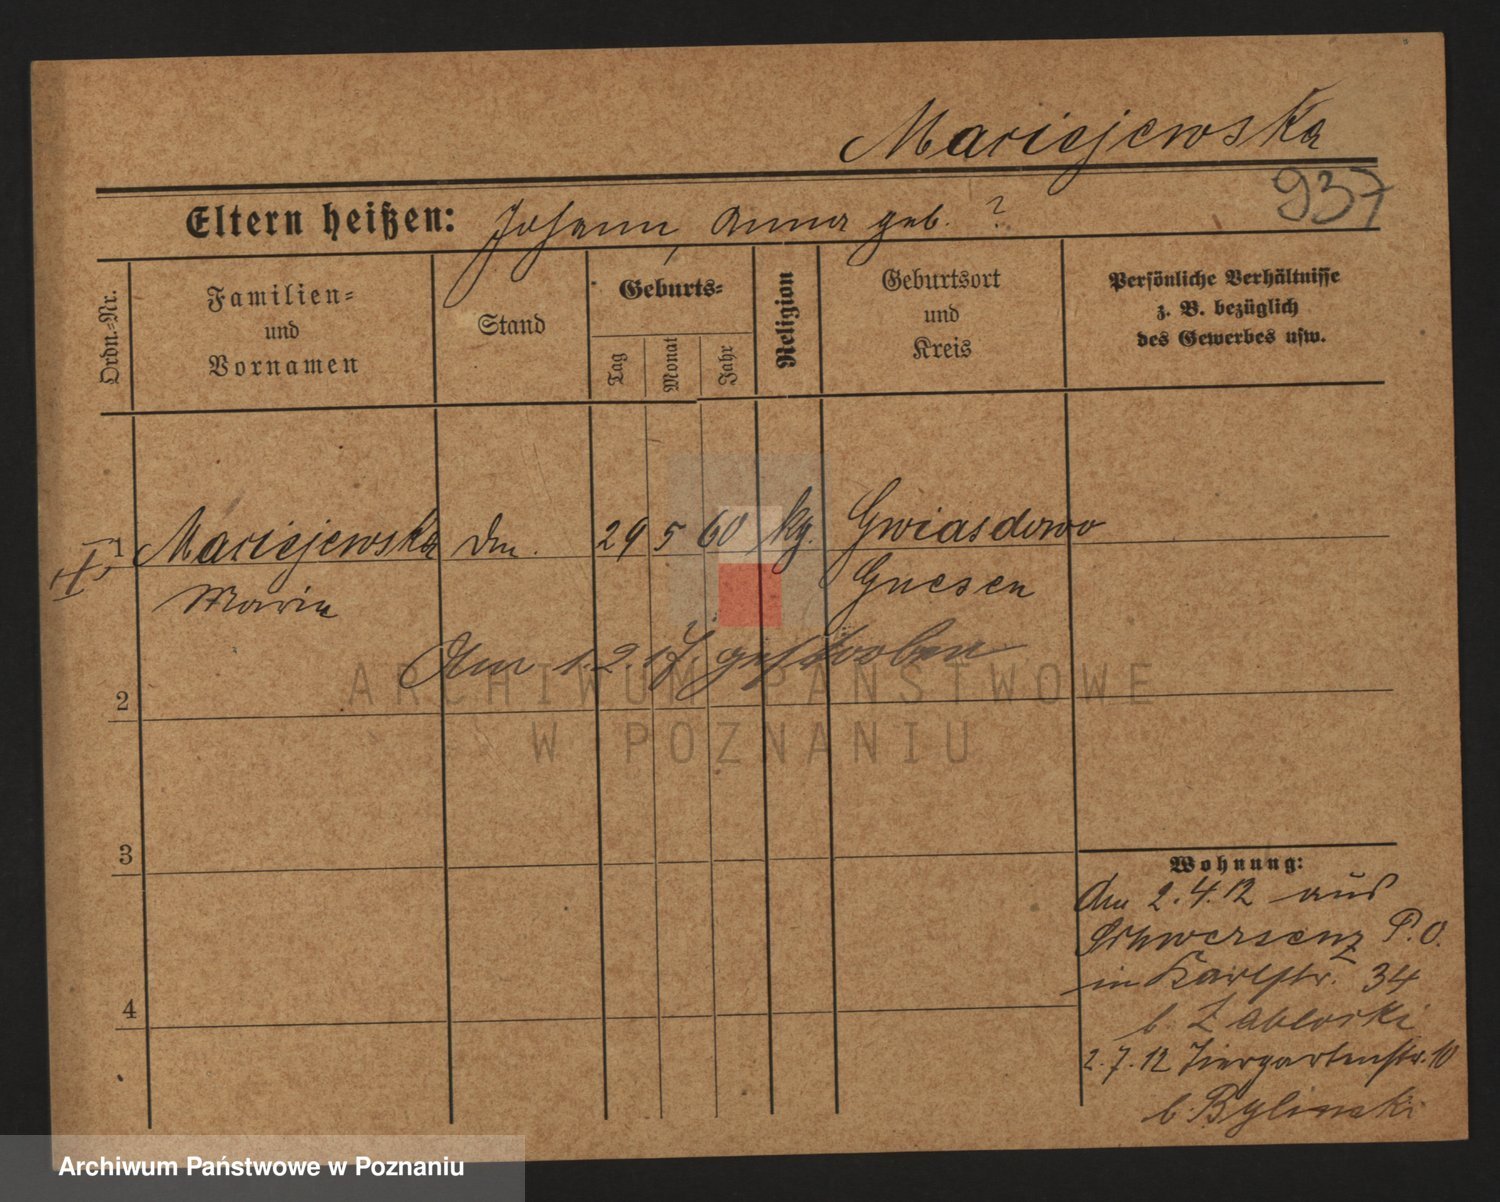 Maciejewska
937
Eltern heißen: Johann, Anna geb. ?
Ordn.-Nr.
Familien-
und
Vornamen
Stand
Geburts-
Tag
Monat
Jahr
Religion
Geburtsort
und
Kreis
Persönliche Verhältnisse
z. B. bezüglich
des Gewerbes usw.
1 Maciejewska 29 5 60 kg. Gwiasdowo
Maria Gnesen
Am 1.2.17 gestorben
ARCHIWUM PAŃSTWOWE
W POZNANIU
2
3
4
Wohnung:
Am 2.4.12 aus
Schwersenz P.O.
in Karlstr. 34
b. Zablocki
2.7.12 Tiergartenstr. 10
b. Bylinski
Archiwum Państwowe w Poznaniu